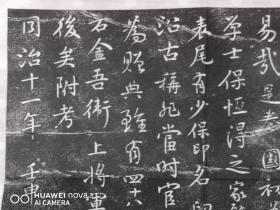 易哉是卷國不
學士保恆得之家
表尾有少保印名
沿古稱非當时官
為贈典雖有四十八
右金吾衛上將軍
後矣附考
同治十一年壬申
HUAWEI nova 5z
AI CAMERA